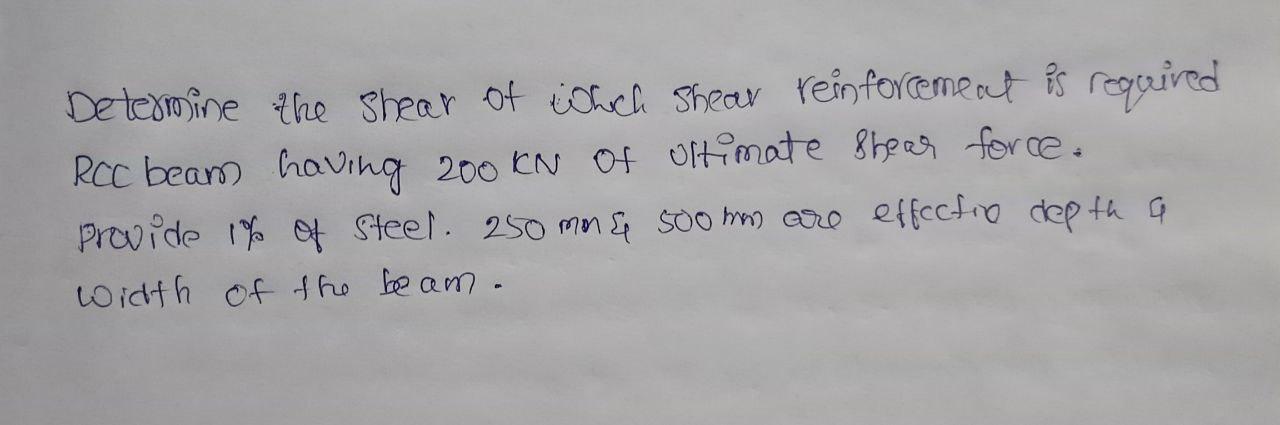 Determine the shear of which shear reinforcement is required
RCC beam having 200 KN of ultimate shear force.
Provide 1% of steel. 250 mm & 500 mm are effective depth &
width of the beam.